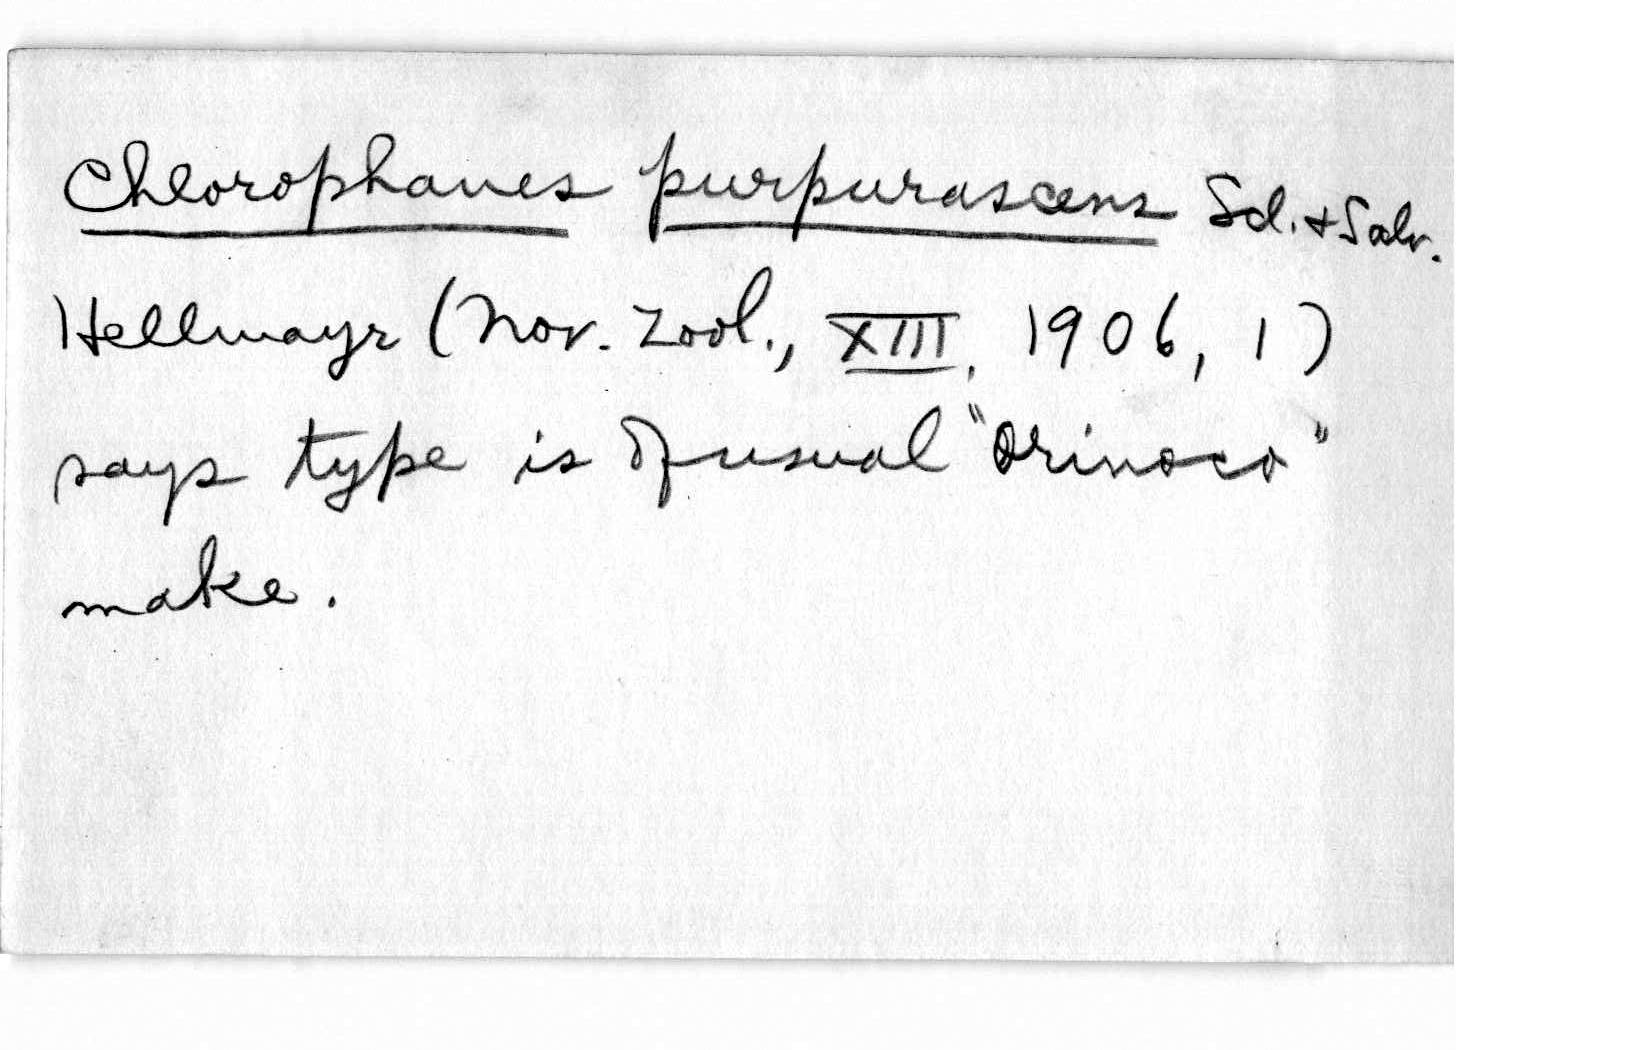 Chlorophanes purpurascens Scl. + Salv.
Hellmayr (Nov. Zool., XIII, 1906, 1)
says type is of usual "Orinoco"
make.